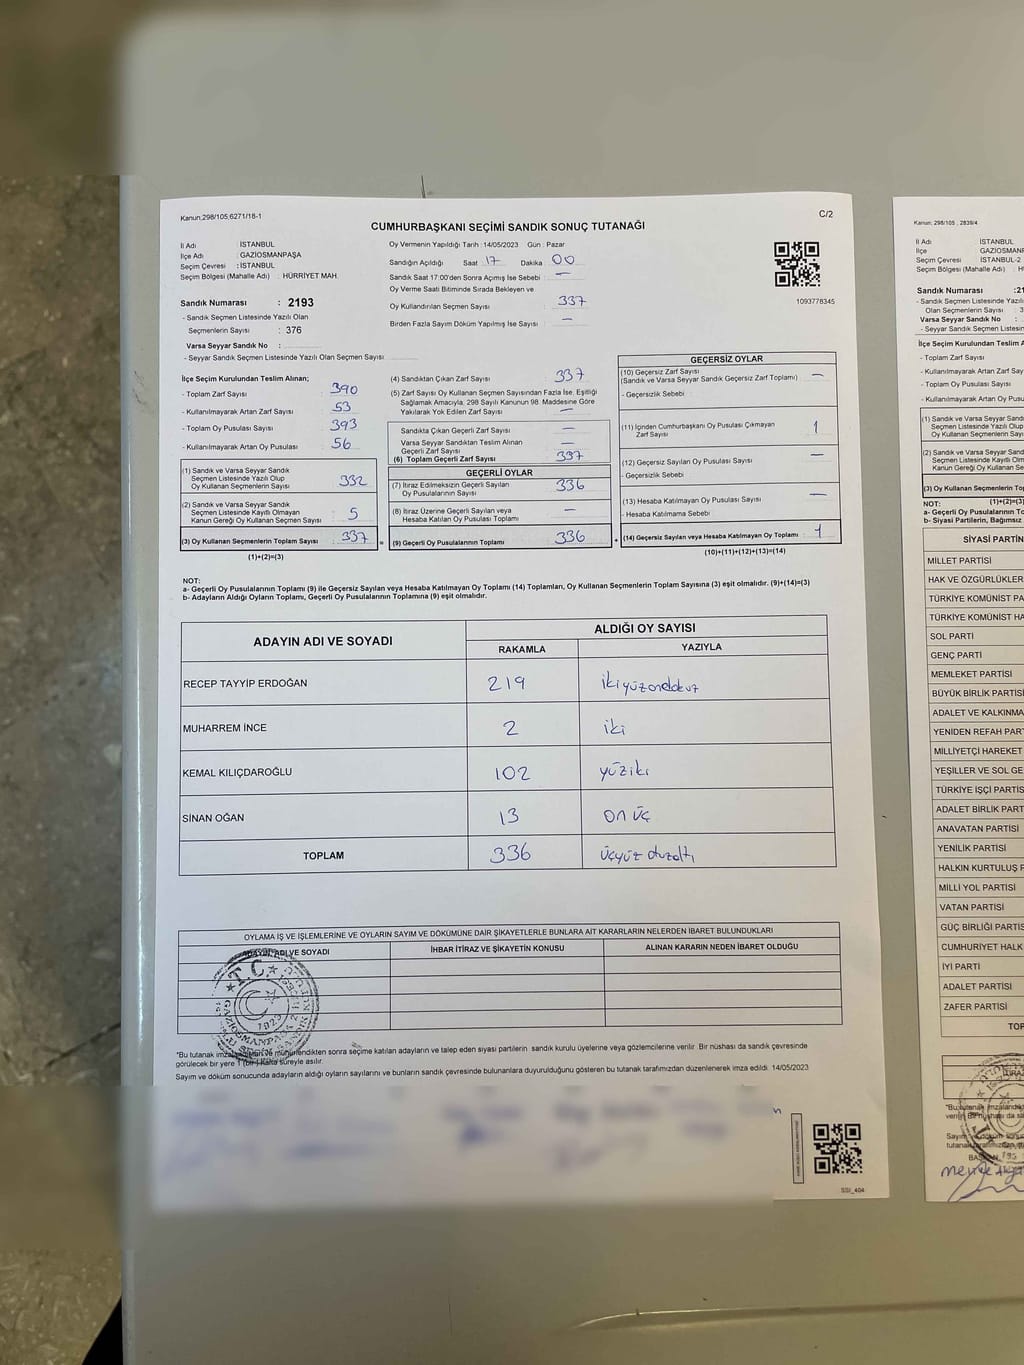 Kanun;298/105;6271/18-1
C/2
CUMHURBAŞKANI SEÇİMİ SANDIK SONUÇ TUTANAĞI
İl Adı : İSTANBUL
İlçe Adı : GAZİOSMANPAŞA
Seçim Çevresi : İSTANBUL
Seçim Bölgesi (Mahalle Adı) : HÜRRİYET MAH.
Sandık Numarası : 2193
- Sandık Seçmen Listesinde Yazılı Olan
Seçmenlerin Sayısı : 376
Varsa Seyyar Sandık No :
- Seyyar Sandık Seçmen Listesinde Yazılı Olan Seçmen Sayısı
Oy Vermenin Yapıldığı Tarih : 14/05/2023 Gün : Pazar
Sandığın Açıldığı Saat 17 Dakika 00
Sandık Saat 17:00'den Sonra Açımış İse Sebebi : —
Oy Verme Saati Bitiminde Sırada Bekleyen ve
Oy Kullandırılan Seçmen Sayısı : 337
Birden Fazla Sayım Döküm Yapılmış İse Sayısı : —
1093778345
İlçe Seçim Kurulundan Teslim Alınan;
- Toplam Zarf Sayısı : 390
- Kullanılmayarak Artan Zarf Sayısı : 53
- Toplam Oy Pusulası Sayısı : 393
- Kullanılmayarak Artan Oy Pusulası : 56
(1) Sandık ve Varsa Seyyar Sandık
Seçmen Listesinde Yazılı Olup
Oy Kullanan Seçmenlerin Sayısı : 332
(2) Sandık ve Varsa Seyyar Sandık
Seçmen Listesinde Kayıtlı Olmayan
Kanun Gereği Oy Kullanan Seçmen Sayısı : 5
(3) Oy Kullanan Seçmenlerin Toplam Sayısı : 337 =
(1)+(2)=(3)
(4) Sandıktan Çıkan Zarf Sayısı : 337
(5) Zarf Sayısı Oy Kullanan Seçmen Sayısından Fazla İse, Eşitliği
Sağlamak Amacıyla, 298 Sayılı Kanunun 98. Maddesine Göre
Yakılarak Yok Edilen Zarf Sayısı : —
Sandıkta Çıkan Geçerli Zarf Sayısı : —
Varsa Seyyar Sandıktan Teslim Alınan
Geçerli Zarf Sayısı : —
(6) Toplam Geçerli Zarf Sayısı : 337
GEÇERLİ OYLAR
(7) İtiraz Edilmeksizin Geçerli Sayılan
Oy Pusulalarının Sayısı : 336
(8) İtiraz Üzerine Geçerli Sayılan veya
Hesaba Katılan Oy Pusulası Toplamı : —
(9) Geçerli Oy Pusulalarının Toplamı : 336 +
GEÇERSİZ OYLAR
(10) Geçersiz Zarf Sayısı
(Sandık ve Varsa Seyyar Sandık Geçersiz Zarf Toplamı) : —
- Geçersizlik Sebebi :
(11) İçinden Cumhurbaşkanı Oy Pusulası Çıkmayan
Zarf Sayısı : 1
(12) Geçersiz Sayılan Oy Pusulası Sayısı : —
- Geçersizlik Sebebi :
(13) Hesaba Katılmayan Oy Pusulası Sayısı : —
- Hesaba Katılmama Sebebi :
(14) Geçersiz Sayılan veya Hesaba Katılmayan Oy Toplamı : 1
(10)+(11)+(12)+(13)=(14)
NOT:
a- Geçerli Oy Pusulalarının Toplamı (9) ile Geçersiz Sayılan veya Hesaba Katılmayan Oy Toplamı (14) Toplamları, Oy Kullanan Seçmenlerin Toplam Sayısına (3) eşit olmalıdır. (9)+(14)=(3)
b- Adayların Aldığı Oyların Toplamı, Geçerli Oy Pusulalarının Toplamına (9) eşit olmalıdır.
ADAYIN ADI VE SOYADI
ALDIĞI OY SAYISI
RAKAMLA YAZIYLA
RECEP TAYYİP ERDOĞAN 219 ikiyüzondokuz
MUHARREM İNCE 2 iki
KEMAL KILIÇDAROĞLU 102 yüziki
SİNAN OĞAN 13 on üç
TOPLAM 336 üçyüz otuzaltı
OYLAMA İŞ VE İŞLEMLERİNE VE OYLARIN SAYIM VE DÖKÜMÜNE DAİR ŞİKAYETLERLE BUNLARA AİT KARARLARIN NELERDEN İBARET BULUNDUKLARI
ADI VE SOYADI İHBAR İTİRAZ VE ŞİKAYETİN KONUSU ALINAN KARARIN NEDEN İBARET OLDUĞU
T.C.
1923
*Bu tutanak imzalandıktan ve mühürlendikten sonra seçime katılan adayların ve talep eden siyasi partilerin sandık kurulu üyelerine veya gözlemcilerine verilir. Bir nüshası da sandık çevresinde
görülecek bir yere 1 (bir) hafta süreyle asılır.
Sayım ve döküm sonucunda adayların aldığı oyların sayılarını ve bunların sandık çevresinde bulunanlara duyurulduğunu gösteren bu tutanak tarafımızdan düzenlenerek imza edildi. 14/05/2023
SSI_404
Kanun; 298/105 , 2839/4
İl Adı : İSTANBUL
İlçe : GAZİOSMANP
Seçim Çevresi : İSTANBUL-2
Seçim Bölgesi (Mahalle Adı) : HÜR
Sandık Numarası :21
- Sandık Seçmen Listesinde Yazılı
Olan Seçmenlerin Sayısı : 3
Varsa Seyyar Sandık No :
- Seyyar Sandık Seçmen Listesin
İlçe Seçim Kurulundan Teslim A
- Toplam Zarf Sayısı
- Kullanılmayarak Artan Zarf Sa
- Toplam Oy Pusulası Sayısı
- Kullanılmayarak Artan Oy Pus
(1) Sandık ve Varsa Seyyar Sand
Seçmen Listesinde Yazılı Olup
Oy Kullanan Seçmenlerin Sayıs
(2) Sandık ve Varsa Seyyar Sand
Seçmen Listesinde Kayıtlı Olm
Kanun Gereği Oy Kullanan Se
(3) Oy Kullanan Seçmenlerin Top
(1)+(2)=(3)
NOT:
a- Geçerli Oy Pusulalarının To
b- Siyasi Partilerin, Bağımsız
SİYASİ PARTİN
MİLLET PARTİSİ
HAK VE ÖZGÜRLÜKLER
TÜRKİYE KOMÜNİST PA
TÜRKİYE KOMÜNİST HA
SOL PARTİ
GENÇ PARTİ
MEMLEKET PARTİSİ
BÜYÜK BİRLİK PARTİSİ
ADALET VE KALKINMA
YENİDEN REFAH PAR
MİLLİYETÇİ HAREKET
YEŞİLLER VE SOL GE
TÜRKİYE İŞÇİ PARTİS
ADALET BİRLİK PART
ANAVATAN PARTİSİ
YENİLİK PARTİSİ
HALKIN KURTULUŞ P
MİLLİ YOL PARTİSİ
VATAN PARTİSİ
GÜÇ BİRLİĞİ PARTİS
CUMHURİYET HALK
İYİ PARTİ
ADALET PARTİSİ
ZAFER PARTİSİ
TOP